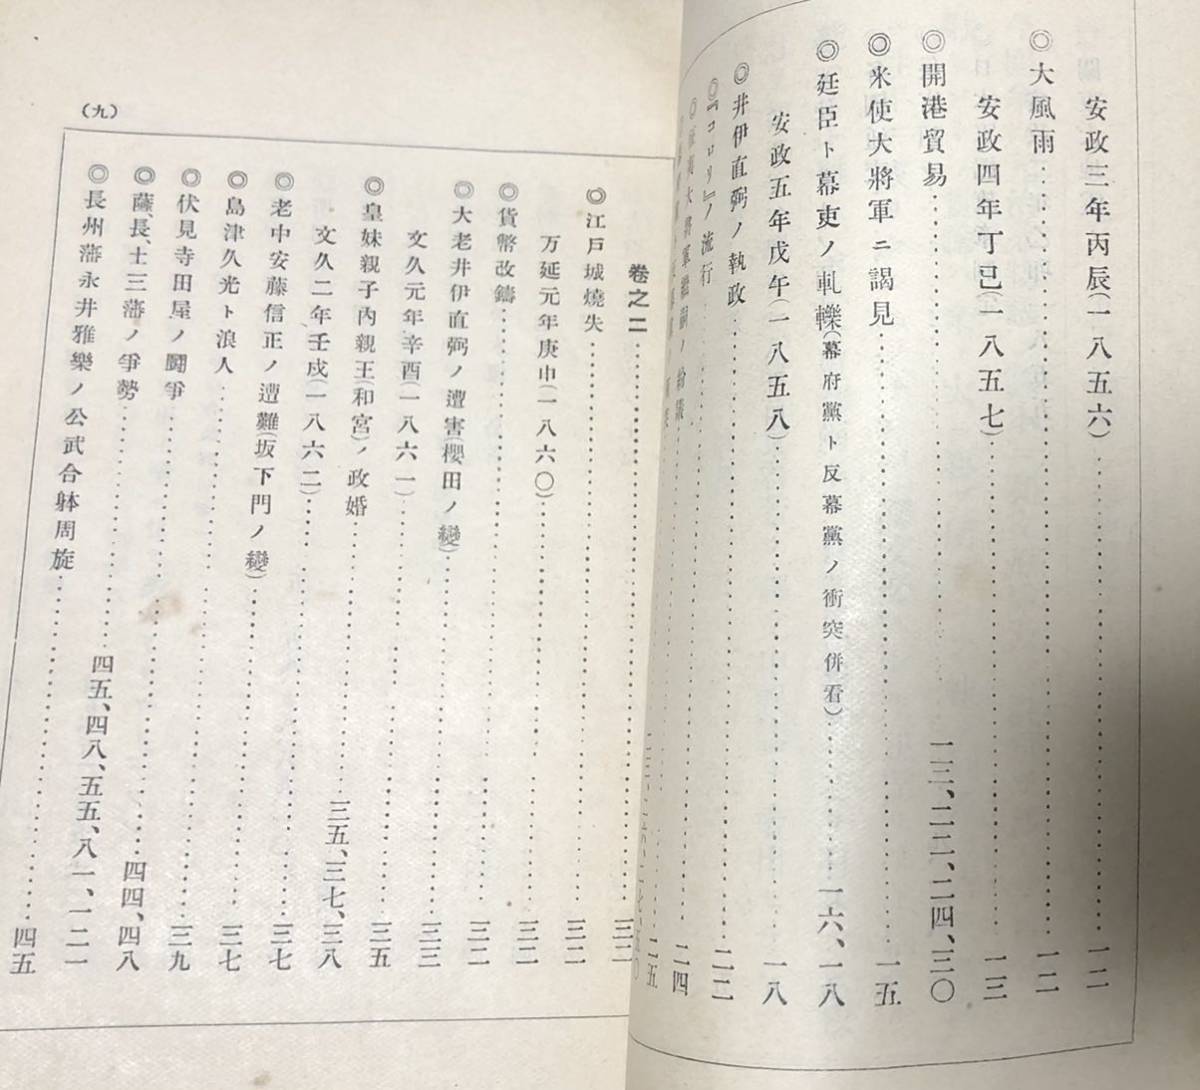 安政三年丙辰(一八五六)……一二
◎大風雨……一二
安政四年丁巳(一八五七)……一三
◎開港貿易……一三、二二、二四、三〇
◎米使大將軍ニ謁見……一五
◎廷臣ト幕吏ノ軋轢(幕府黨ト反幕黨ノ衝突併看)……一六、一八
安政五年戊午(一八五八)……一八
◎井伊直弼ノ執政……二二
◎『コロリ』ノ流行……二四
◎征夷大將軍繼嗣ノ紛議……二五
卷之二……三二
◎江戸城燒失……三二
万延元年庚申(一八六〇)……三二
◎貨幣改鑄……三二
◎大老井伊直弼ノ遭害(櫻田ノ變)……三三
文久元年辛酉(一八六一)……三五
◎皇妹親子內親王(和宮)ノ政婚……三五、三七、三八
文久二年壬戌(一八六二)……三七
◎老中安藤信正ノ遭難(坂下門ノ變)……三七
◎島津久光ト浪人……三九
◎伏見寺田屋ノ鬪爭……四四、四八
◎薩、長、土三藩ノ爭勢……四五、四八、五五、八一、一二一
◎長州藩永井雅樂ノ公武合躰周旋……四五
(九)